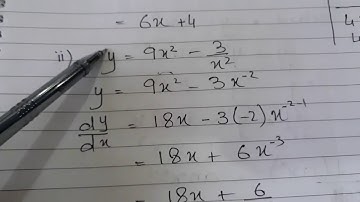 = 6x + 4
ii) y = 9x² - 3/x²
y = 9x² - 3x⁻²
dy/dx = 18x - 3(-2)x⁻²⁻¹
= 18x + 6x⁻³
= 18x + 6
4
4